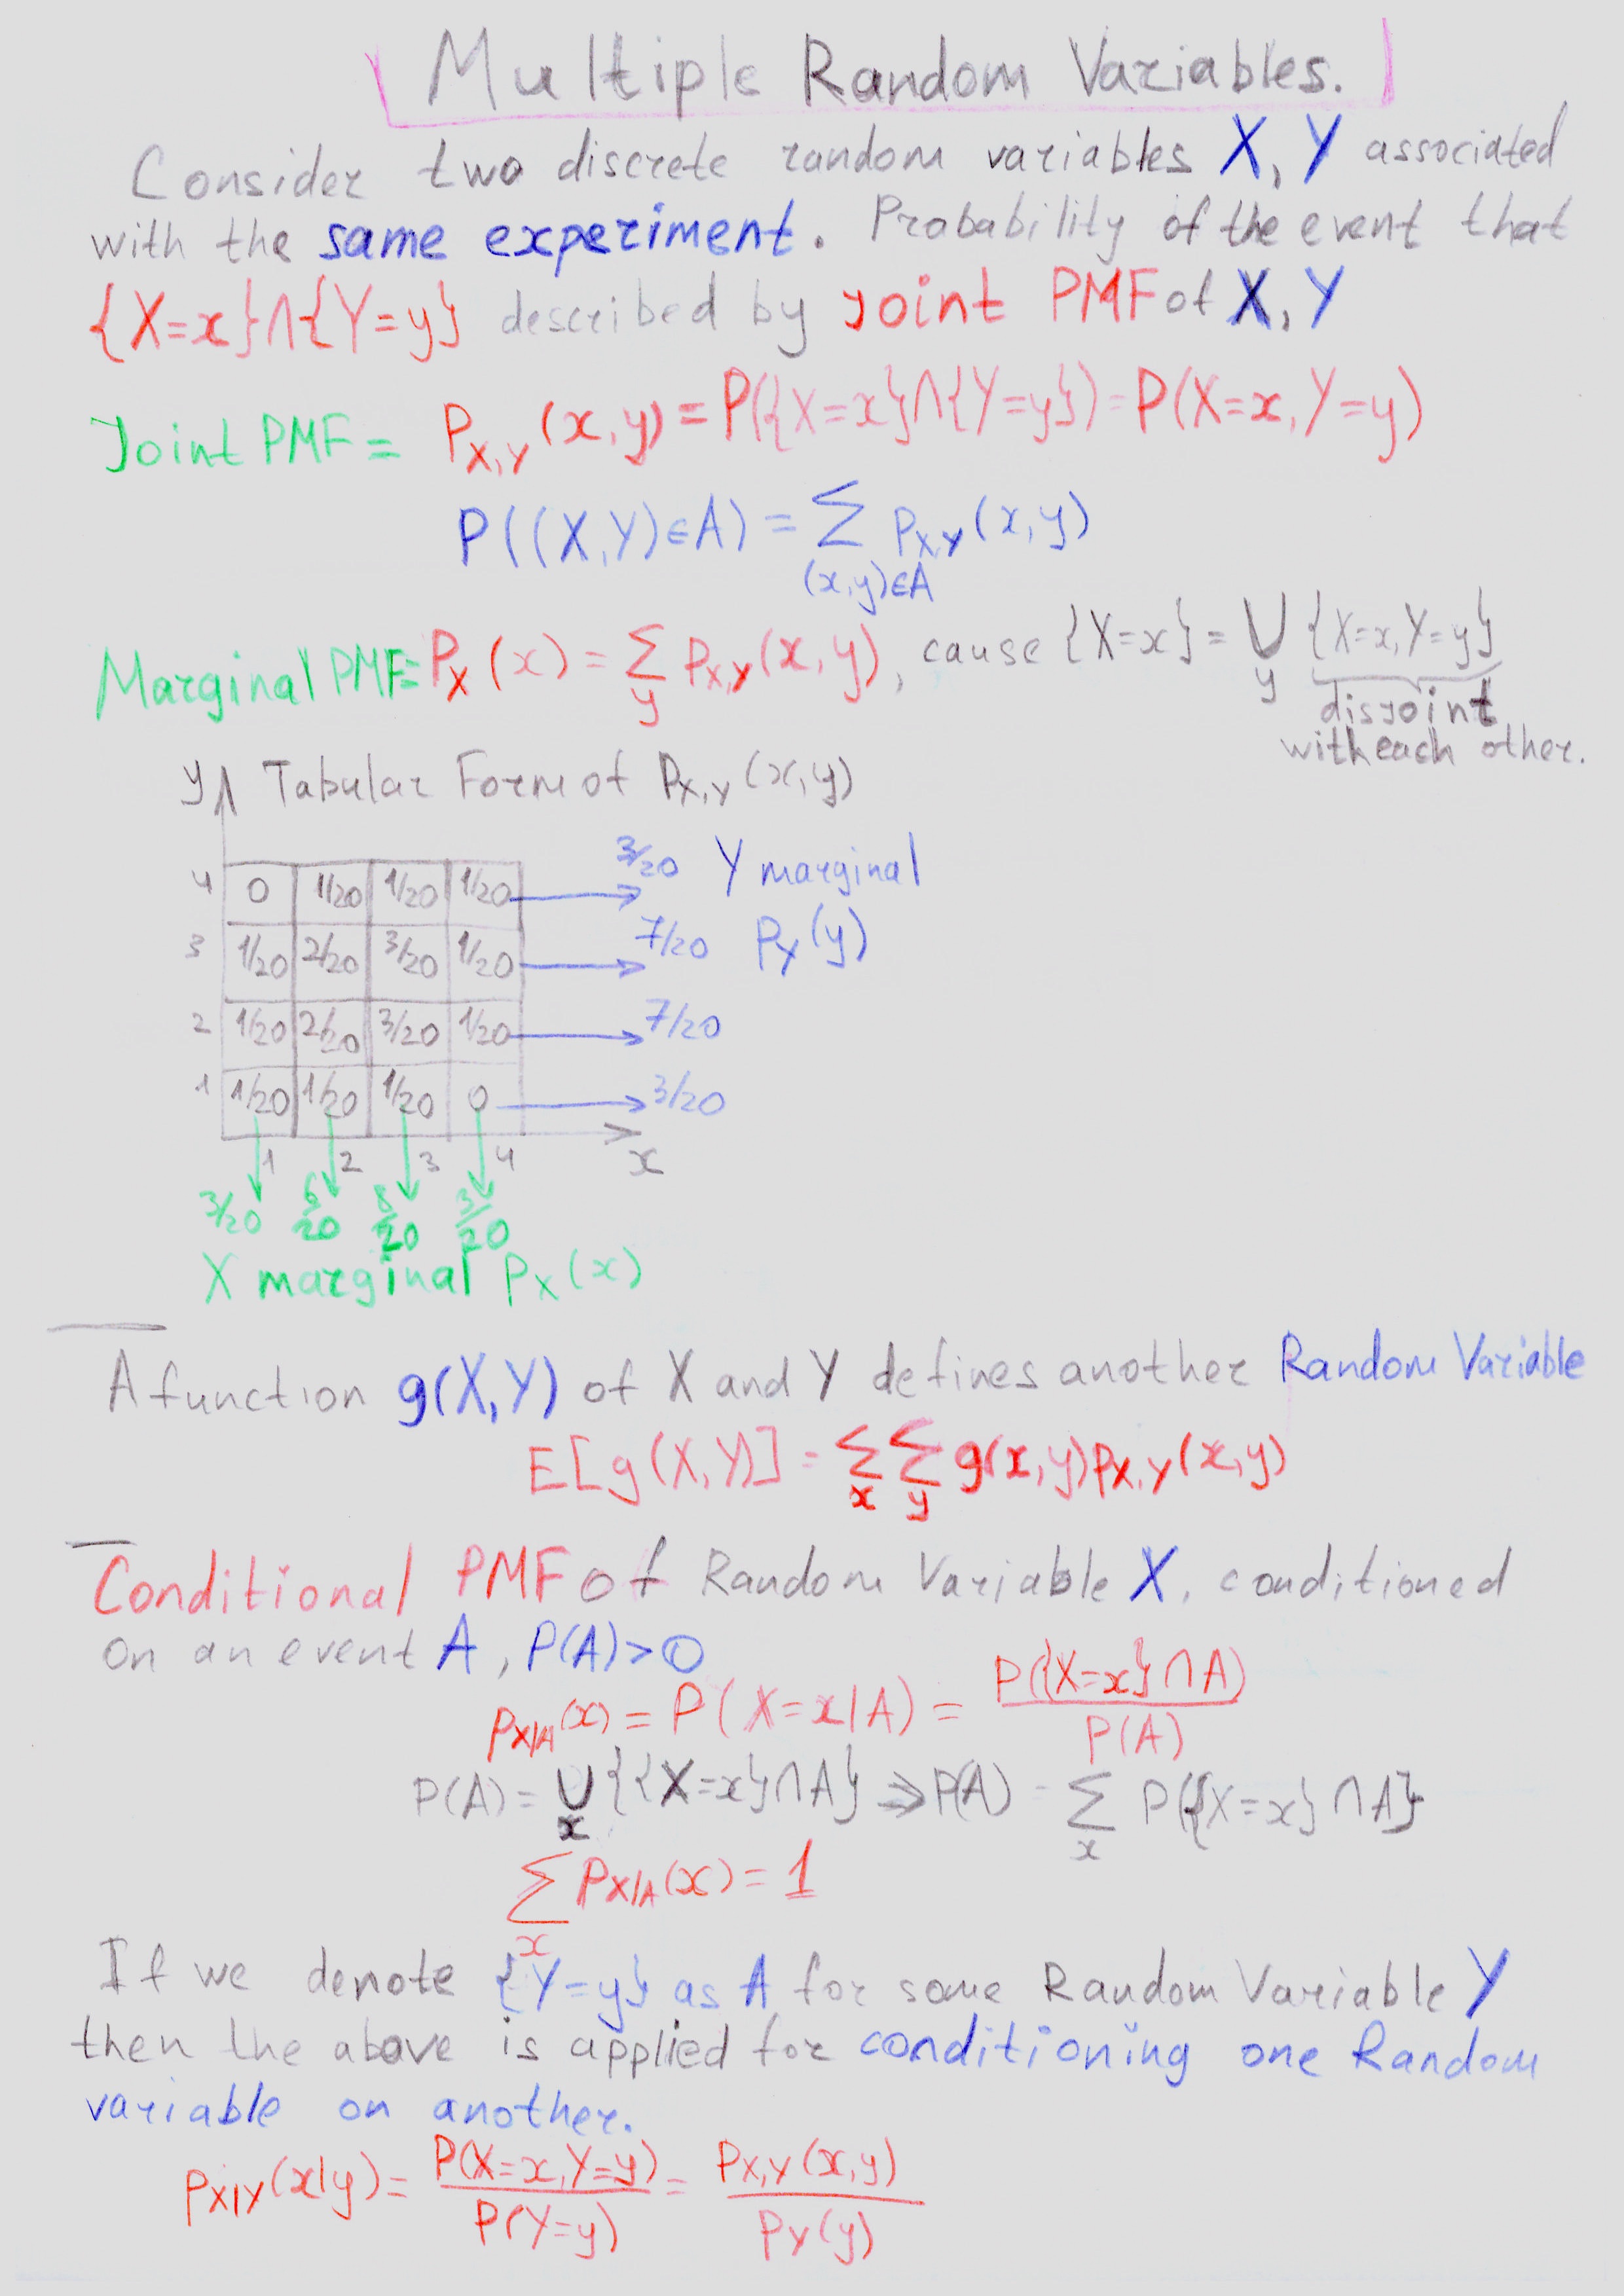 Multiple Random Variables.
Consider two discrete random variables X, Y associated
with the same experiment. Probability of the event that
{X=x}∩{Y=y} described by Joint PMF of X, Y
Joint PMF = P_X,Y (x,y) = P({X=x}∩{Y=y}) = P(X=x, Y=y)
P((X,Y)∈A) = ∑ P_X,Y (x,y)
(x,y)∈A
Marginal PMF = P_X (x) = ∑ P_X,Y (x,y), cause {X=x} = ⋃ {X=x, Y=y}
y y disjoint
with each other.
y Tabular Form of P_X,Y (x,y)
4 0 1/20 1/20 1/20 → 3/20 Y marginal
3 1/20 2/20 3/20 1/20 → 7/20 P_Y (y)
2 1/20 2/20 3/20 1/20 → 7/20
1 1/20 1/20 1/20 0 → 3/20
1 2 3 4 x
3/20 6/20 8/20 3/20
X marginal P_X (x)
A function g(X,Y) of X and Y defines another Random Variable
E[g(X,Y)] = ∑∑ g(x,y) P_X,Y (x,y)
x y
Conditional PMF of Random Variable X, conditioned
on an event A, P(A)>0
P_X|A (x) = P(X=x|A) = P({X=x}∩A) / P(A)
P(A) = ⋃ {{X=x}∩A} ⇒ P(A) = ∑ P({X=x}∩A}
x x
∑ P_X|A (x) = 1
x
If we denote {Y=y} as A for some Random Variable Y
then the above is applied for conditioning one Random
variable on another.
P_X|Y (x|y) = P(X=x, Y=y) / P(Y=y) = P_X,Y (x,y) / P_Y (y)